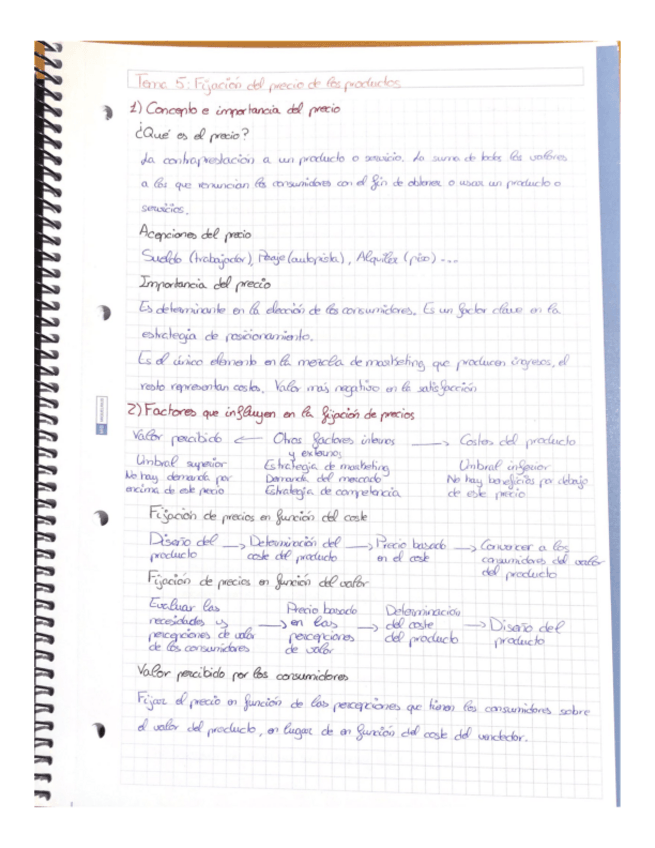 Tema 5: Fijación del precio de los productos
1) Concepto e importancia del precio
¿Qué es el precio?
La contraprestación a un producto o servicio. La suma de todos los valores
a los que renuncian los consumidores con el fin de obtener o usar un producto o
servicios.
Acepciones del precio
Sueldo (trabajador), Peaje (autopista), Alquiler (piso) ...
Importancia del precio
Es determinante en la elección de los consumidores. Es un factor clave en la
estrategia de posicionamiento.
Es el único elemento en la mezcla de marketing que producen ingresos, el
resto representan costes. Valor más negativo en la satisfacción
2) Factores que influyen en la fijación de precios
Valor percibido ← Otros factores internos → Costes del producto
y externos
Umbral superior Estrategia de marketing Umbral inferior
No hay demanda por Demanda del mercado No hay beneficios por debajo
encima de este precio Estrategia de competencia de este precio
Fijación de precios en función del coste
Diseño del → Determinación del → Precio basado → Convencer a los
producto coste del producto en el coste consumidores del valor
del producto
Fijación de precios en función del valor
Evaluar las Precio basado Determinación
necesidades y → en las → del coste → Diseño del
percepciones de valor percepciones del producto producto
de los consumidores de valor
Valor percibido por los consumidores
Fijar el precio en función de las percepciones que tienen los consumidores sobre
el valor del producto, en lugar de en función del coste del vendedor.